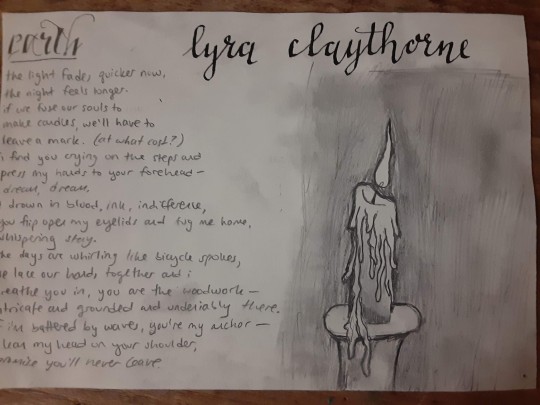 earth
lyra claythorne
the light fades quicker now,
the night feels longer.
if we fuse our souls to
make candles, we'll have to
leave a mark. (at what cost?)
i find you crying on the steps and
press my hands to your forehead—
dream, dream.
drown in blood, ink, indifference,
you flip open my eyelids and tug me home,
whispering stay.
the days are whirling like bicycle spokes,
we lace our hands together and i
breathe you in, you are the woodwork—
intricate and grounded and undeniably there.
if i'm battered by waves, you're my anchor—
lean my head on your shoulder,
promise you'll never leave.